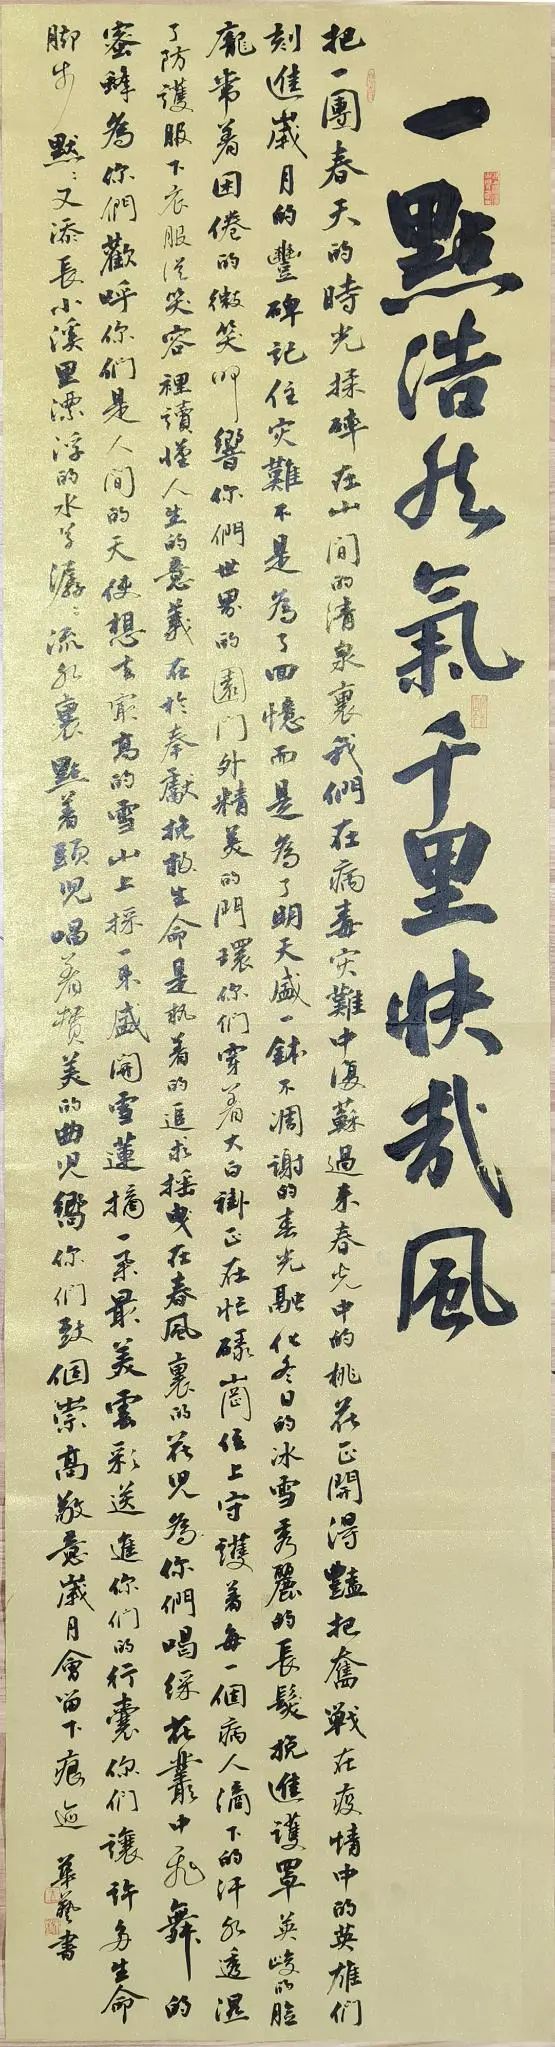 一點浩然氣千里快哉風
把一團春天的時光揉碎在山間的清泉裏我們在病毒灾難中復蘇過来春光中的桃花正開得豔把奮戰在疫情中的英雄們
刻進歲月的豐碑記住灾難不是為了回憶而是為了明天盛一鉢不凋謝的春光融化冬日的冰雪秀麗的長髮挽進護罩英峻的臉
龐常着困倦的微笑叩響你們世界的園门外精美的門環你们穿着大白褂正在忙碌崗位上守護着每一個病人滴下的汗水透濕
了防護服下衣服從笑容裡讀懂人生的意義在於奉獻挽救生命是執着的追求摇曳在春風裏的花兒為你們唱綵花叢中飛舞的
蜜蜂為你們歡呼你們是人間的天使想去最高的雪山上採一朵盛開雪蓮摘一朵最美雲彩送進你们的行囊你们讓許多生命
脚步默〻又添長小溪里漂浮的水草潺〻流水裏點着頭兒唱着赞美的曲兒嚮你们致個崇高敬意歲月會留下痕迹 華藝書